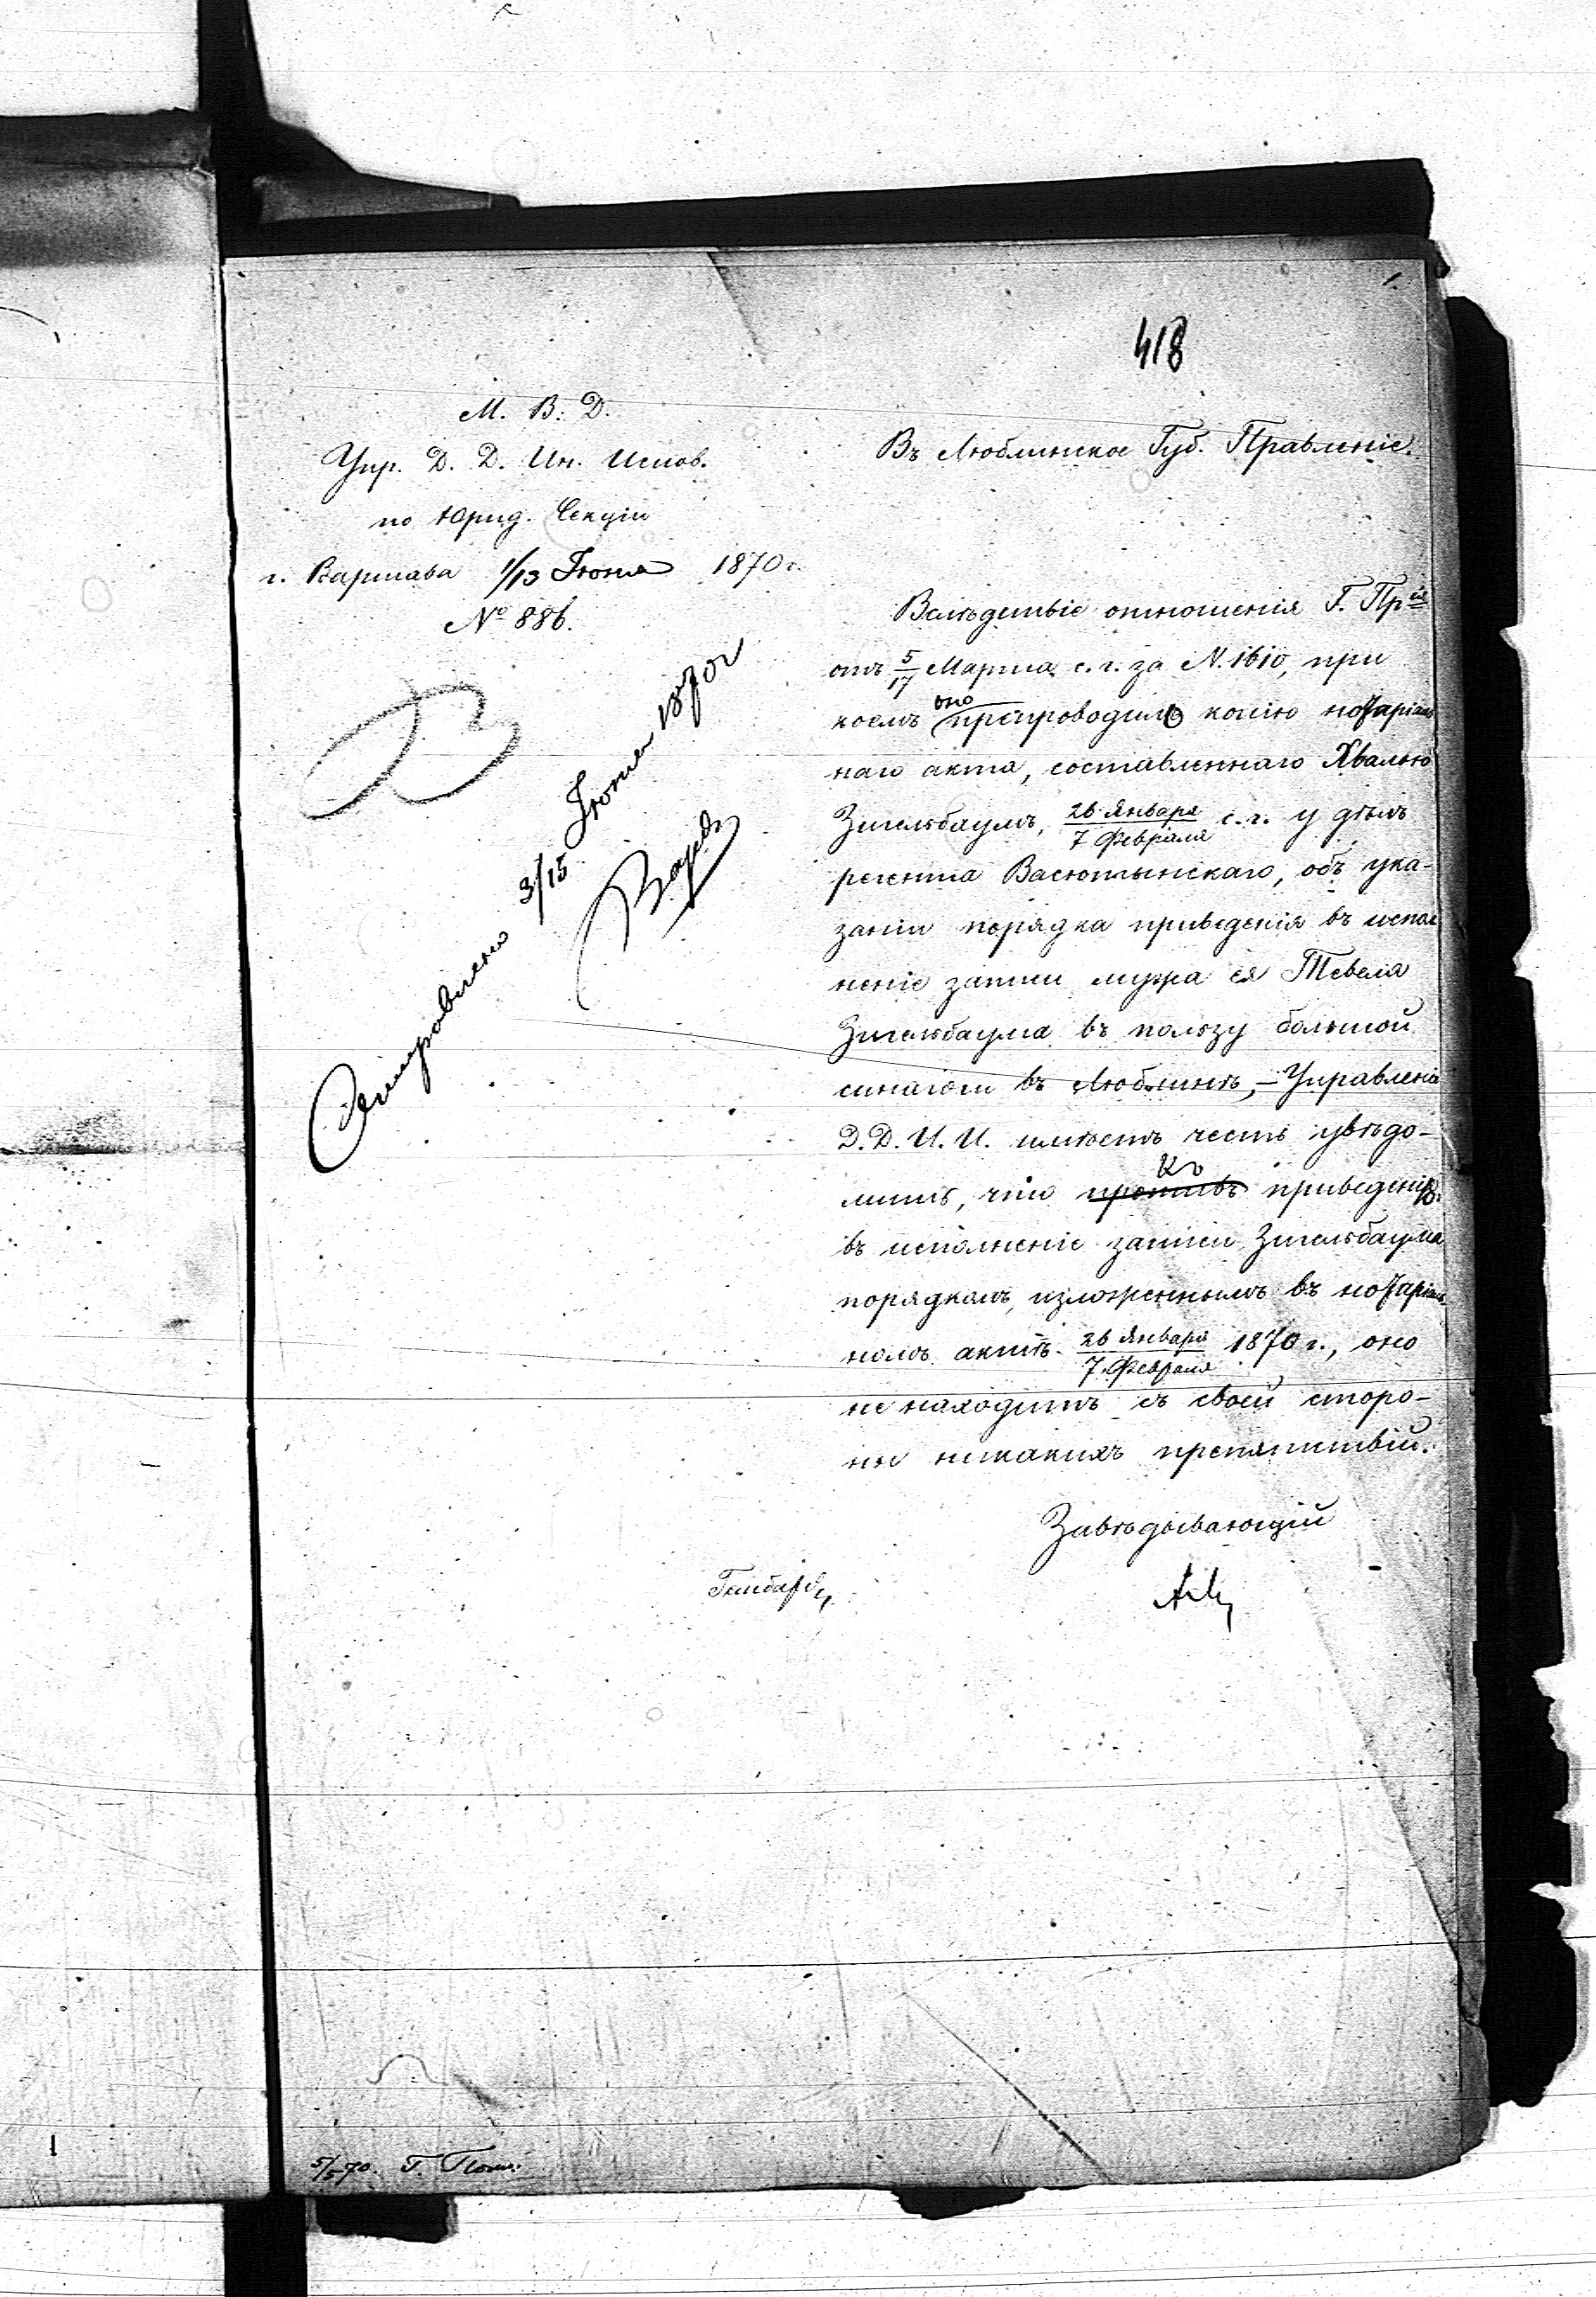 418
М. В. Д.
Упр. Д. Д. Ин. Испов.
по Юрид. Секціи
г. Варшава 1/13 Іюня 1870 г.
№ 886.
Отправлено 3/15 Іюня 1870 г
Въ Люблинское Губ. Правленіе.
Вслѣдствіе отношенія Г. Пр-ія
отъ 5/17 Марта с. г. за N. 1610, при
коемъ оно препроводило копію нотаріаль
наго акта, составленнаго Хвалою
Зигельбаумъ, 26 Января/7 Февраля с. г. у дѣлъ
регента Васютынскаго, объ ука-
заніи порядка приведенія въ испол
неніе записи мужа ея Тевеля
Зигельбаума въ пользу большой
синагоги въ Люблинѣ, – Управленіе
Д. Д. И. И. имѣетъ честь увѣдо-
мить, что противъ къ приведенію
въ исполненіе записи Зигельбаума
порядкомъ, изложеннымъ въ нотаріаль
номъ актѣ 26 Января/7 Февраля 1870 г., оно
не находитъ съ своей сторо-
ны никакихъ препятствій.
Завѣдывающій
5/5 70. Г.